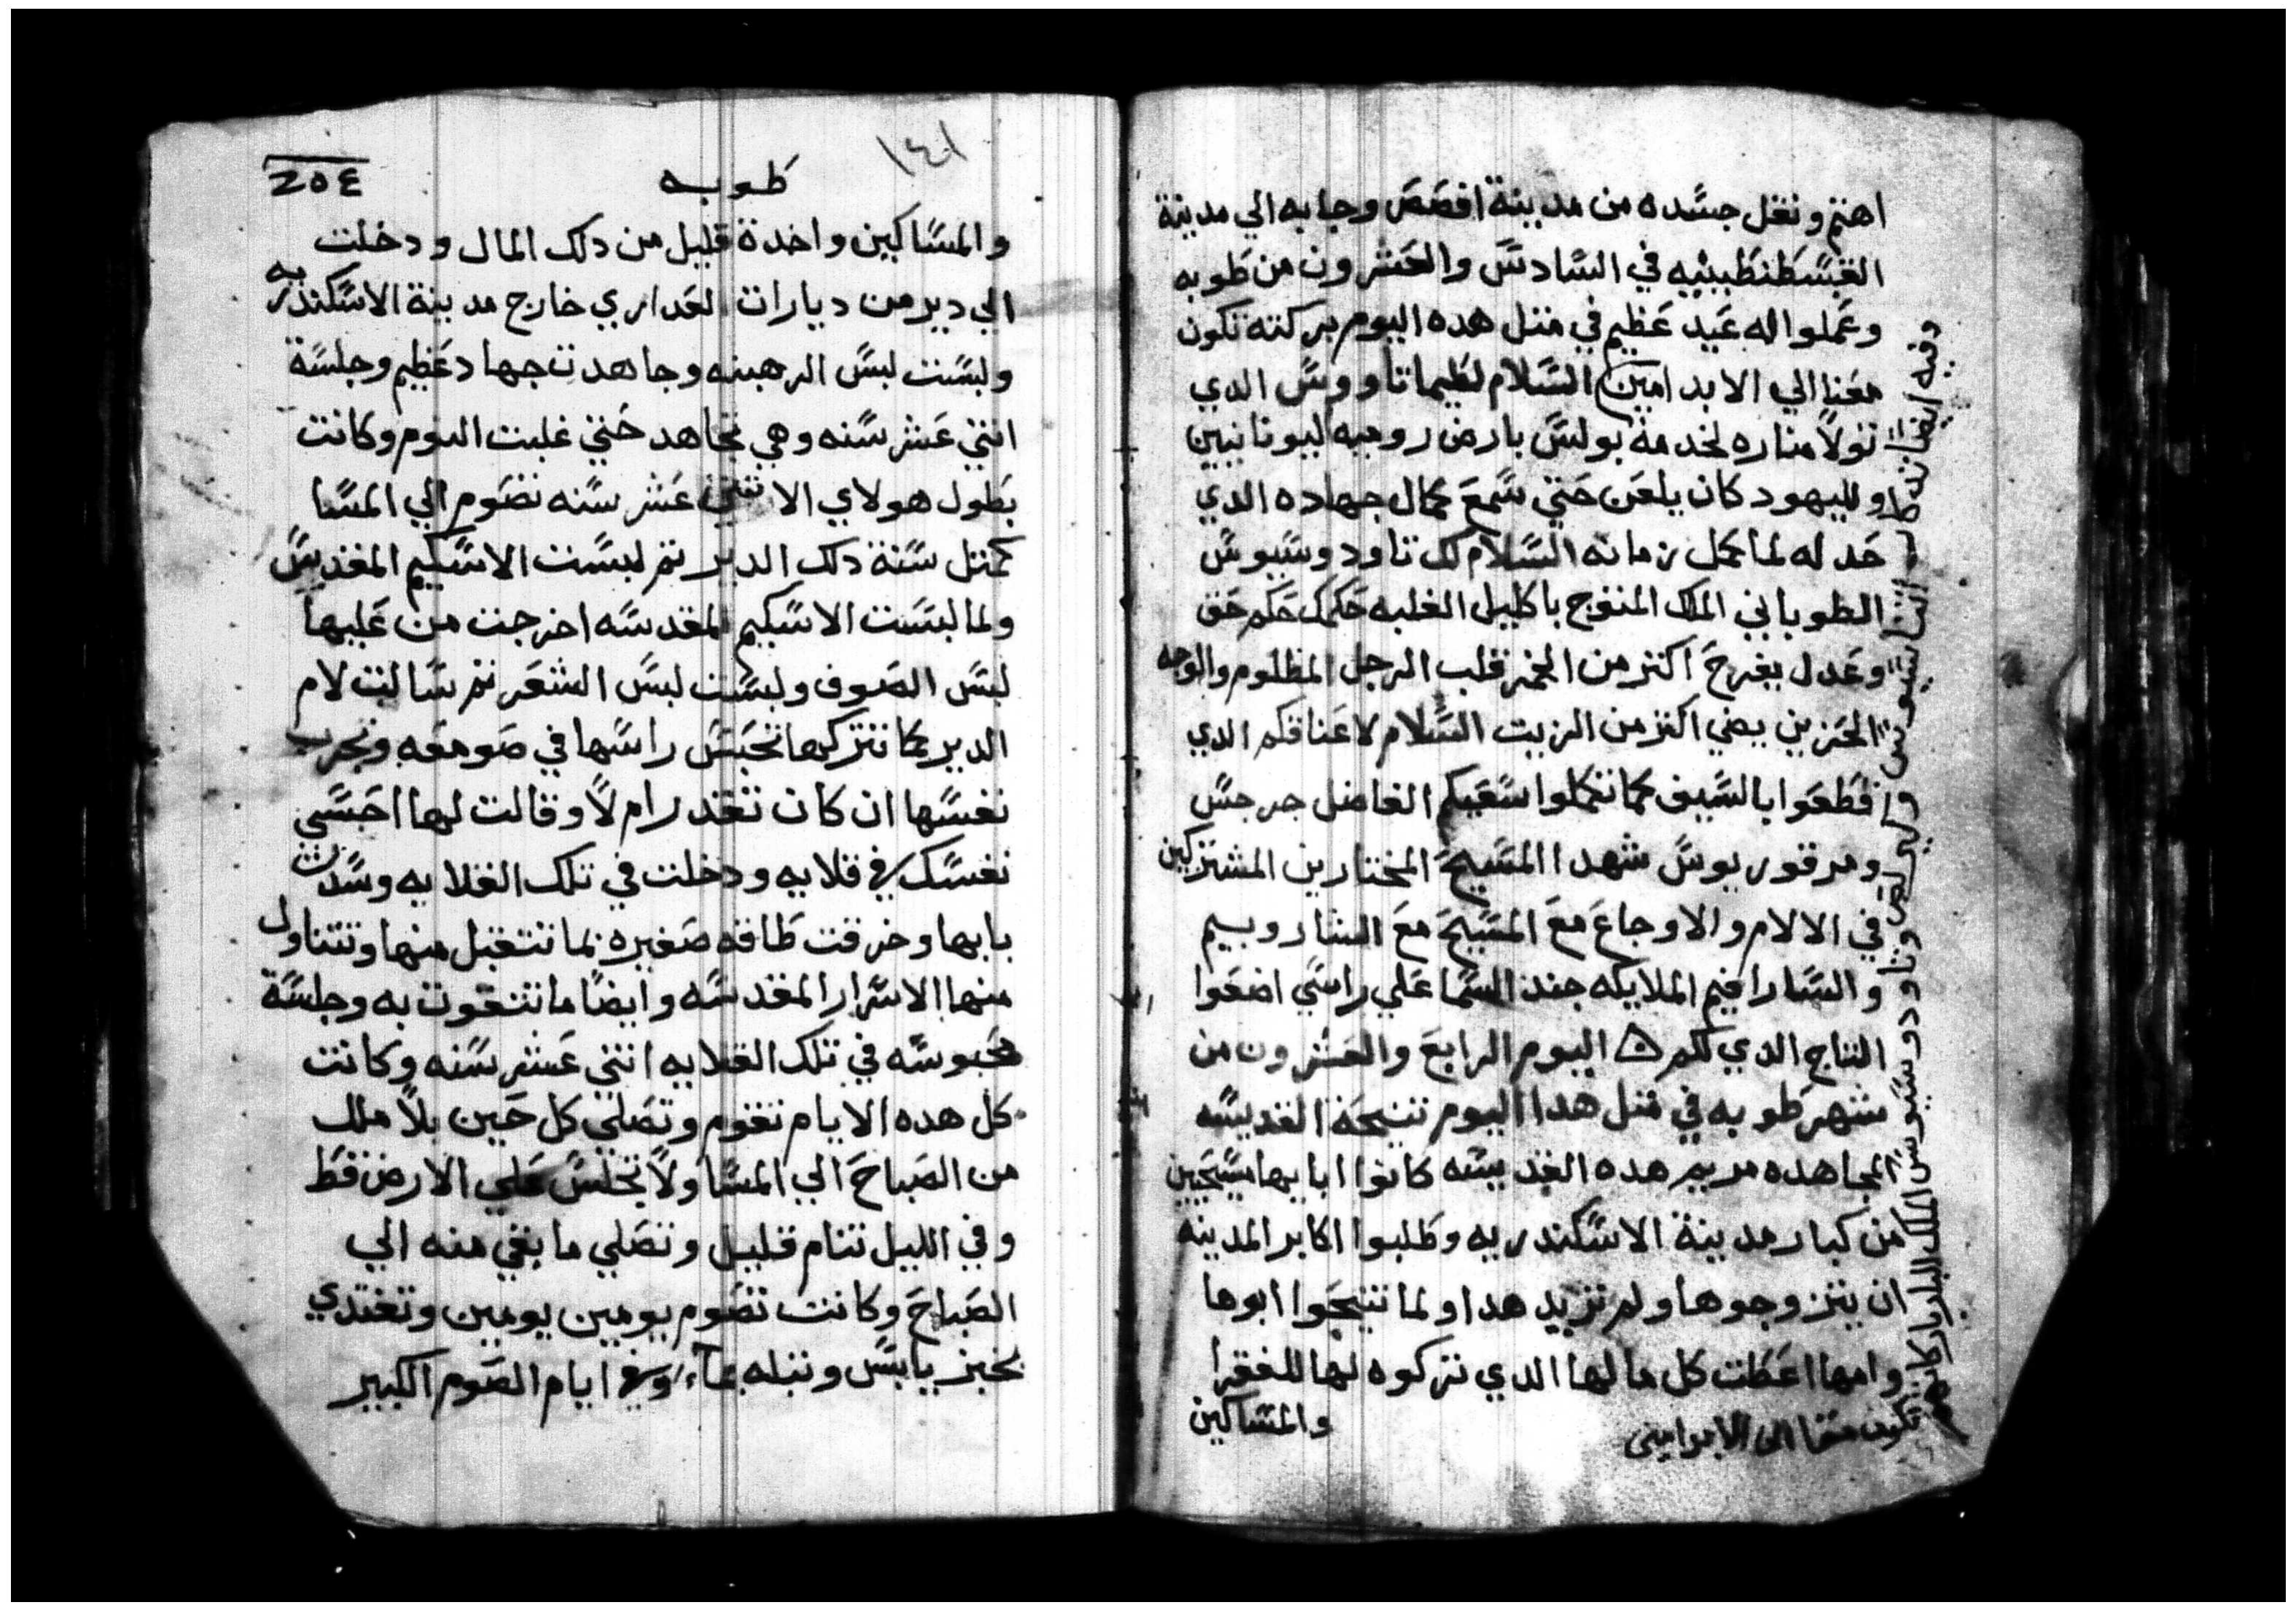 اهتم ونقل جسده من مدينة افصص وجابه الي مدينة
القسطنطينيه في السادس والعشرون من طوبه
وعملوا له عيد عظيم في متل هده اليوم بركته تكون
معنا الي الابد امين السلام لطيماتاووس الدي
تولا مناره لخدمة بولس بارض روميه ليونانيين
ولليهود كان يلعن حتي سمع كمال جهاده الدي
حد له لما كمل زمانه السلام لك تاودوسيوس
الطوباني الملك المتوج باكليل الغلبه حكمك حكم حق
وعدل يفرح اكتر من الخمر قلب الرجل المظلوم والوجه
الحزين يضي اكتر من الزيت السلام لاعناقكم الدي
اقطعوا بالسيف كما تكملوا سعيكم الفاضل جرجس
ومرقوريوس شهدا المسيح المختارين المشتركين
في الالام والاوجاع مع المسيح مع الشاروبيم
والسارافيم الملايكه جند السما علي راسي اضعوا
التاج الدي لكم اليوم الرابع والعشرون من
شهر طوبه في متل هدا اليوم تنيحة القديسه
المجاهده مريم هده القديسه كانوا ابايها مسيحيين
من كبار مدينة الاسكندريه وطلبوا اكابر المدينه
ان يتزوجوها ولم تزيد هدا ولما تنيحوا ابوها
وامها اعطت كل مالها الدي تركوه لها للفقرا
والمساكين
وفيه ايضا
وتاودوسيوس الملك البار بركاتهم
تكون معنا الى الابد امين
١٤١
طوبه
٢٥٤
والمساكين واخدة قليل من دلك المال ودخلت
الي دير من ديارات العداري خارج مدينة الاسكندريه
ولبست لبس الرهبنه وجاهدت جهاد عظيم وجلسة
اتني عشر سنه وهي تجاهد حتي غلبت النوم وكانت
بطول هولاي الاتني عشر سنه تصوم الي المسا
كمتل سنة دلك الدير تم لبست الاسكيم المقديس
ولما لبست الاسكيم المقدسه اخرجت من عليها
لبس الصوف ولبست لبس الشعر تم سالت لام
الدير كما تتركها تحبس راسها في صومعه وتجرب
نفسها ان كان تقدر ام لا وقالت لها احبسي
نفسك في قلايه ودخلت في تلك القلايه وسدت
بابها وخرقت طاقه صغيره لما تتقبل منها وتتناول
منها الاسرار المقدسه وايضا ما تتقوت به وجلسة
محبوسه في تلك القلايه اتني عشر سنه وكانت
كل هده الايام تقوم وتصلي كل حين بلا ملل
من الصباح الي المسا ولا تجلس علي الارض قط
وفي الليل تنام قليل وتصلي ما بقي منه الي
الصباح وكانت تصوم يومين يومين وتغتدي
بخبز يابس وتبله بماء وفي ايام الصوم الكبير